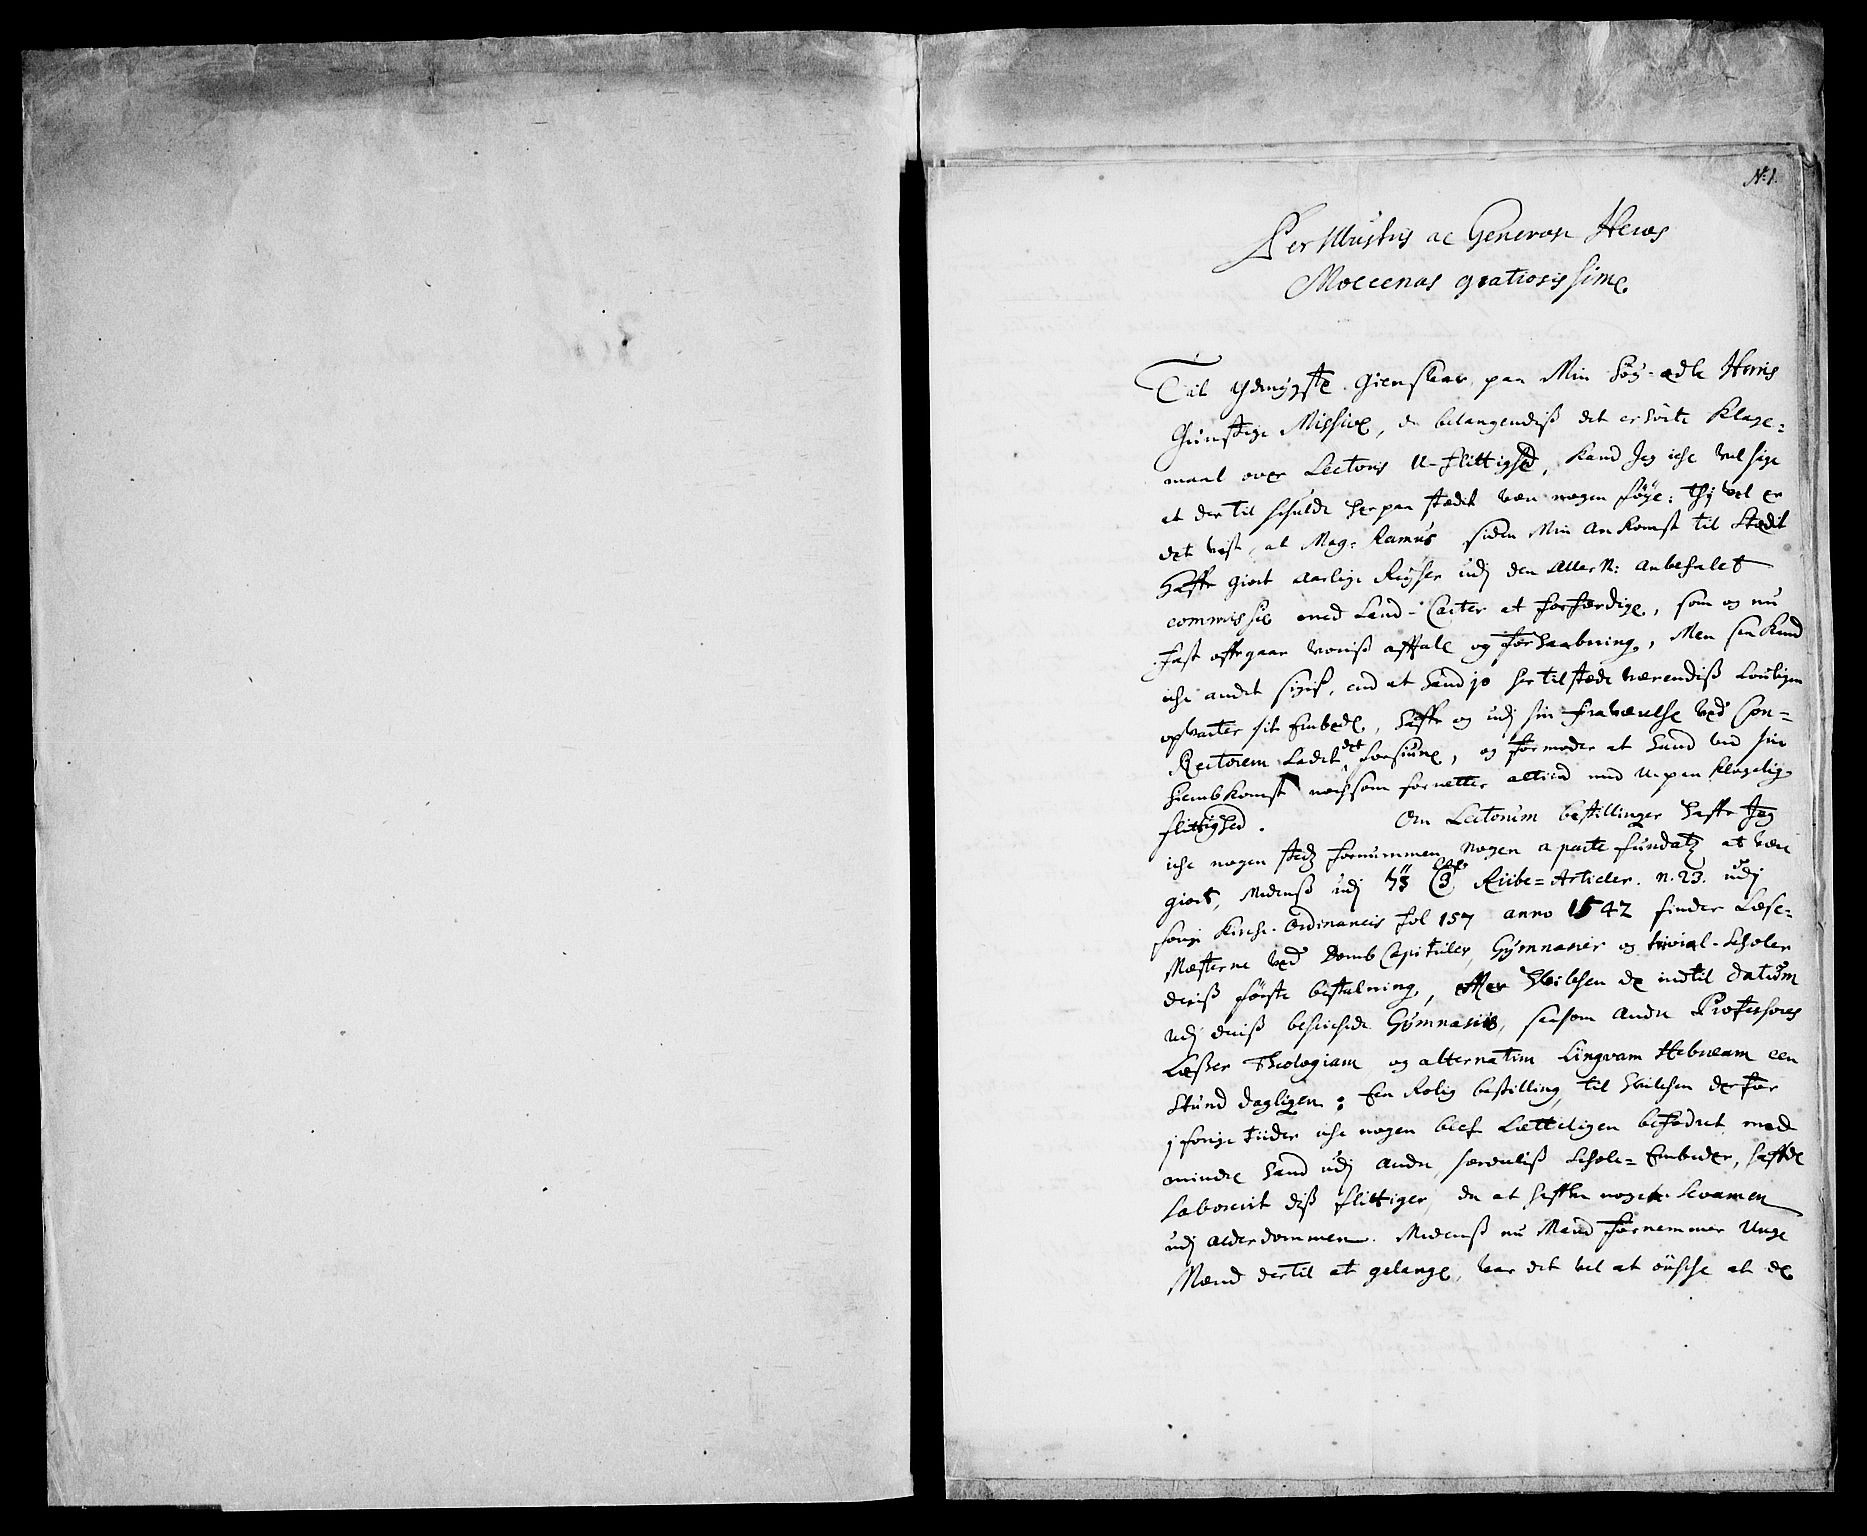 N: 1.
Per Illustris ac Generose Heros
Moecenas gratiosissime
Till ydmygste Giensvar paa Min Høy-ædle Herris
Gunstige Missive, da belangendiß det erhörte Klage-
maal over Lectoris U-flittighed, kand Jeg iche vel sige
at der til schulde her paa stædit være nogen føye: thj vel er
det vist, at Mag: Ramus siden Min ankomst til Stædit
haffr giort aarlige Reyser udj den Aller N: anbefalet
commissie med Land-Carter at forfærdige, som og nu
fast offrgaar voriß affтale og forhaabning, Men saa kand
iche andet sigis, end at hand jo her tilstæde værendiß Lovligen
opvarter sit Embede, haffr og udj sin fraværelse ved Con-
Rectorem Ladet det forsiune, og formoder at hand ved sin
hiembkomst noch som forretter altiid med U-paaklagelig
flittighed. Om Lectorum bestillinger haffr Jeg
iche nogen stedz fornummen nogen aparte fundatz at være
giort, Medenß udj Riibe-Articler. n. 23. udj
forrige Kirche-Ordinancis fol 157 anno 1542 finder Læse-
Mesterne ved Domb Capituler, Gymnasier og trivial-Scholer
deriß første bestalning, effter hvilchen de indtil datum
udj deriß beschichede Gymnasiis, saasom andre Professores
Læßer Theologiam og alternatim Lingvam Hebræam een
Stund dagligen: Een Rolig bestilling, til hvilchen derfor
j forrige tiider iche nogen blef Lætteligen befodret med
mindre hand udj andre særdeliß Schole-Embeder, haffde
laborerit diß flittiger, da at haffve noget Levamen
udj alderdommen. Medenß nu Mand fornemmer Unge
Mænd dertil at gelange, var det vel at önsche at de